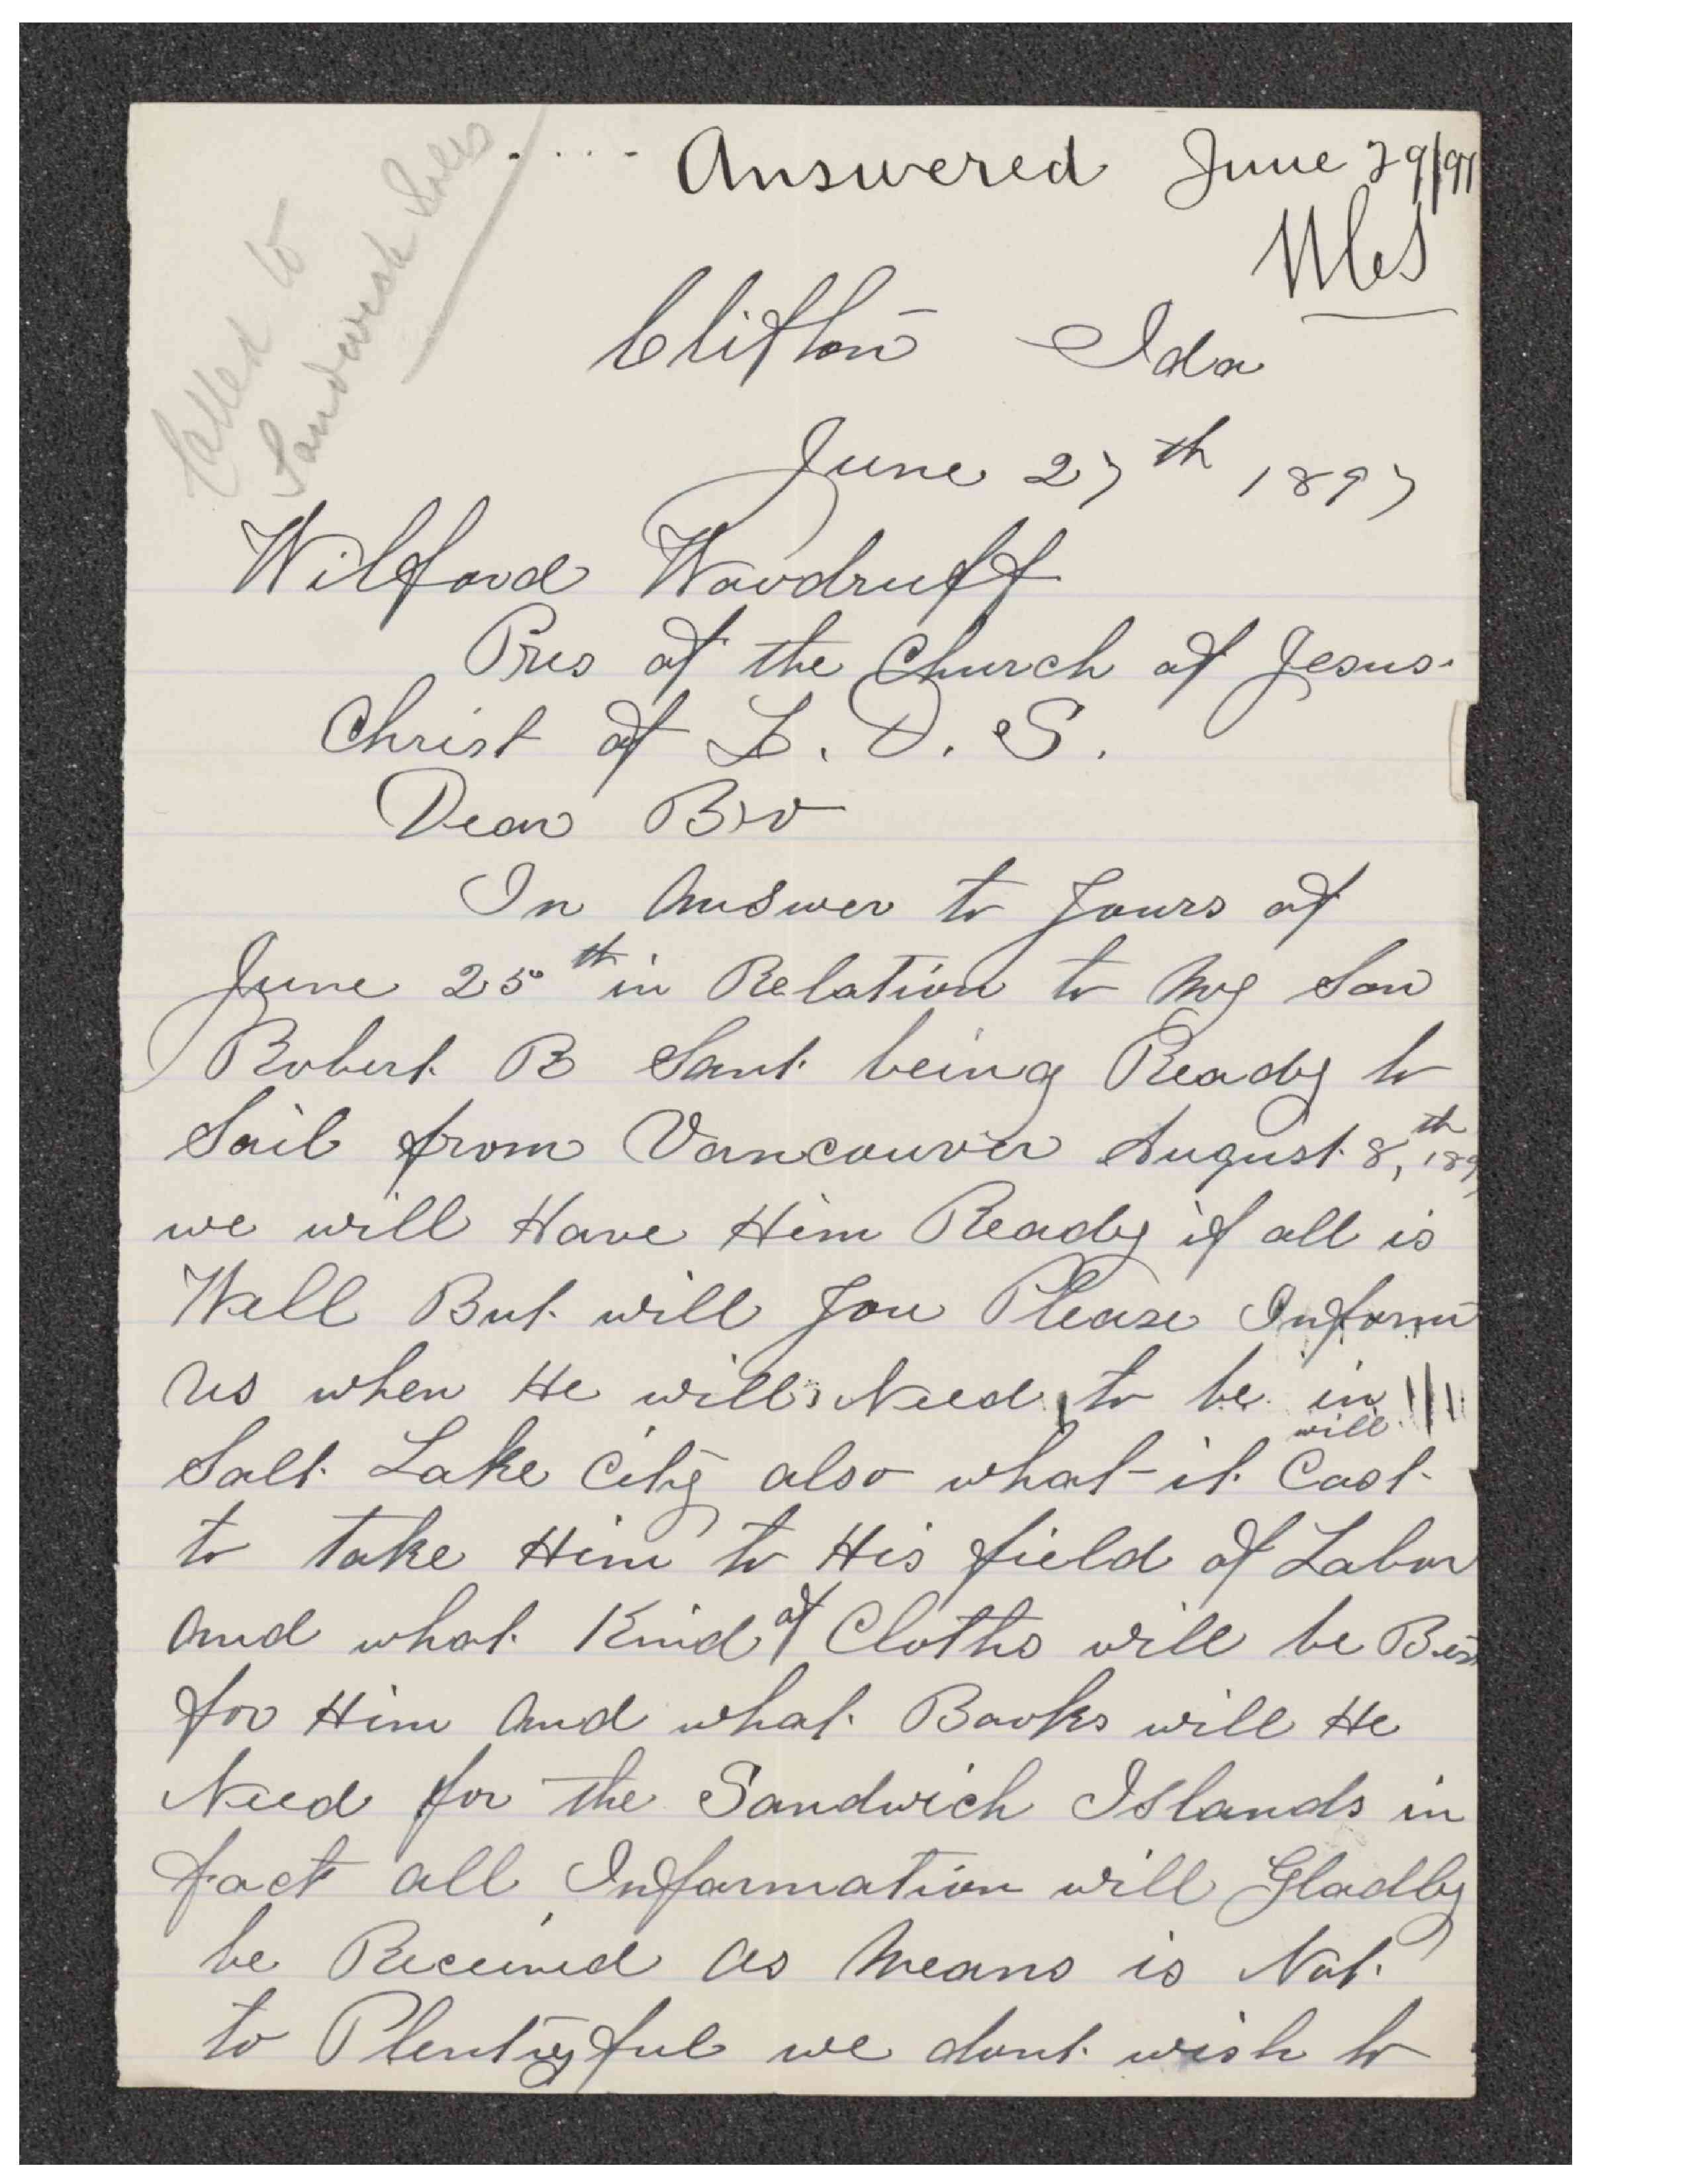 Called to
Sandwich Isles
Answered June 29/97
Clifton Ida
June 27th 1897
Wilford Woodruff
Pres of the Church of Jesus
Christ of L. D. S.
Dear Bro
In Answer to Yours of
June 25th in Relation to My Son
Robert B Sant being Ready to
Sail from Vancouver August 8,th 1897
we will Have Him Ready if all is
Well But will You Please Inform
us when He will Need to be in
Salt Lake City also what it will Cost
to take Him to His field of Labor
And what Kind of Cloths will be Best
for Him And what Books will He
Need for the Sandwich Islands in
fact all Information will Gladly
be Received as Means is Not
to Plentyful we dont wish to